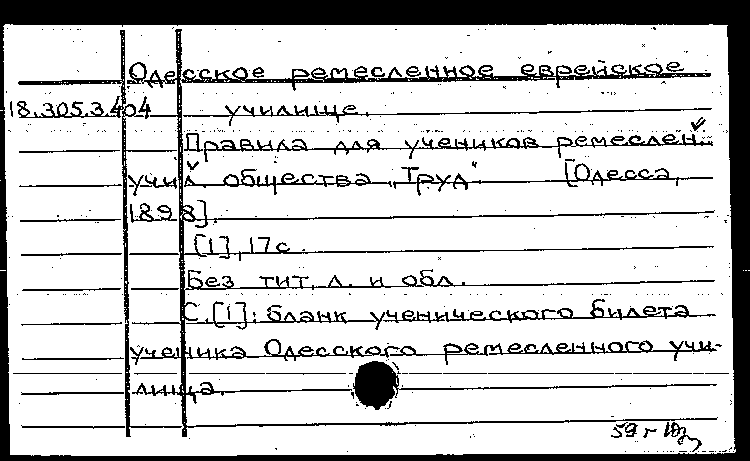 Одесское ремесленное еврейское
18.305.3.404 училище.
Правила для учеников ремеслен.
учил. общества „Труд“ [Одесса,
1898].
[1], 17 с.
Без тит. л. и обл.
С. [1]: бланк ученического билета
ученика Одесского ремесленного учи-
лища.
59 г